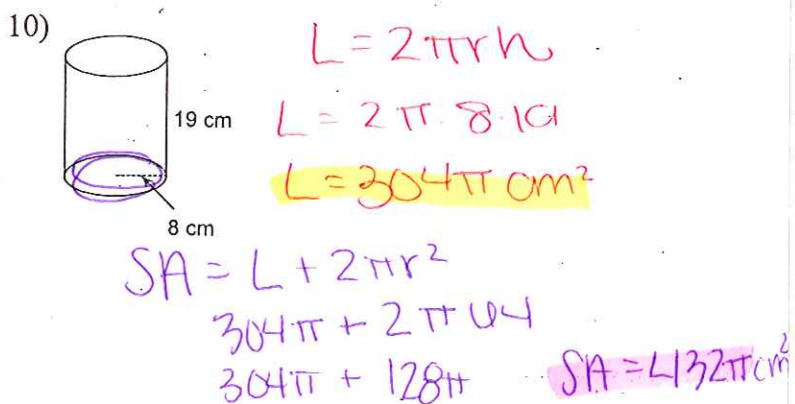 10)
19 cm
8 cm
L = 2πrh
L = 2π · 8 · 19
L = 304π cm²
SA = L + 2πr²
304π + 2π 64
304π + 128π
SA = 432π cm²